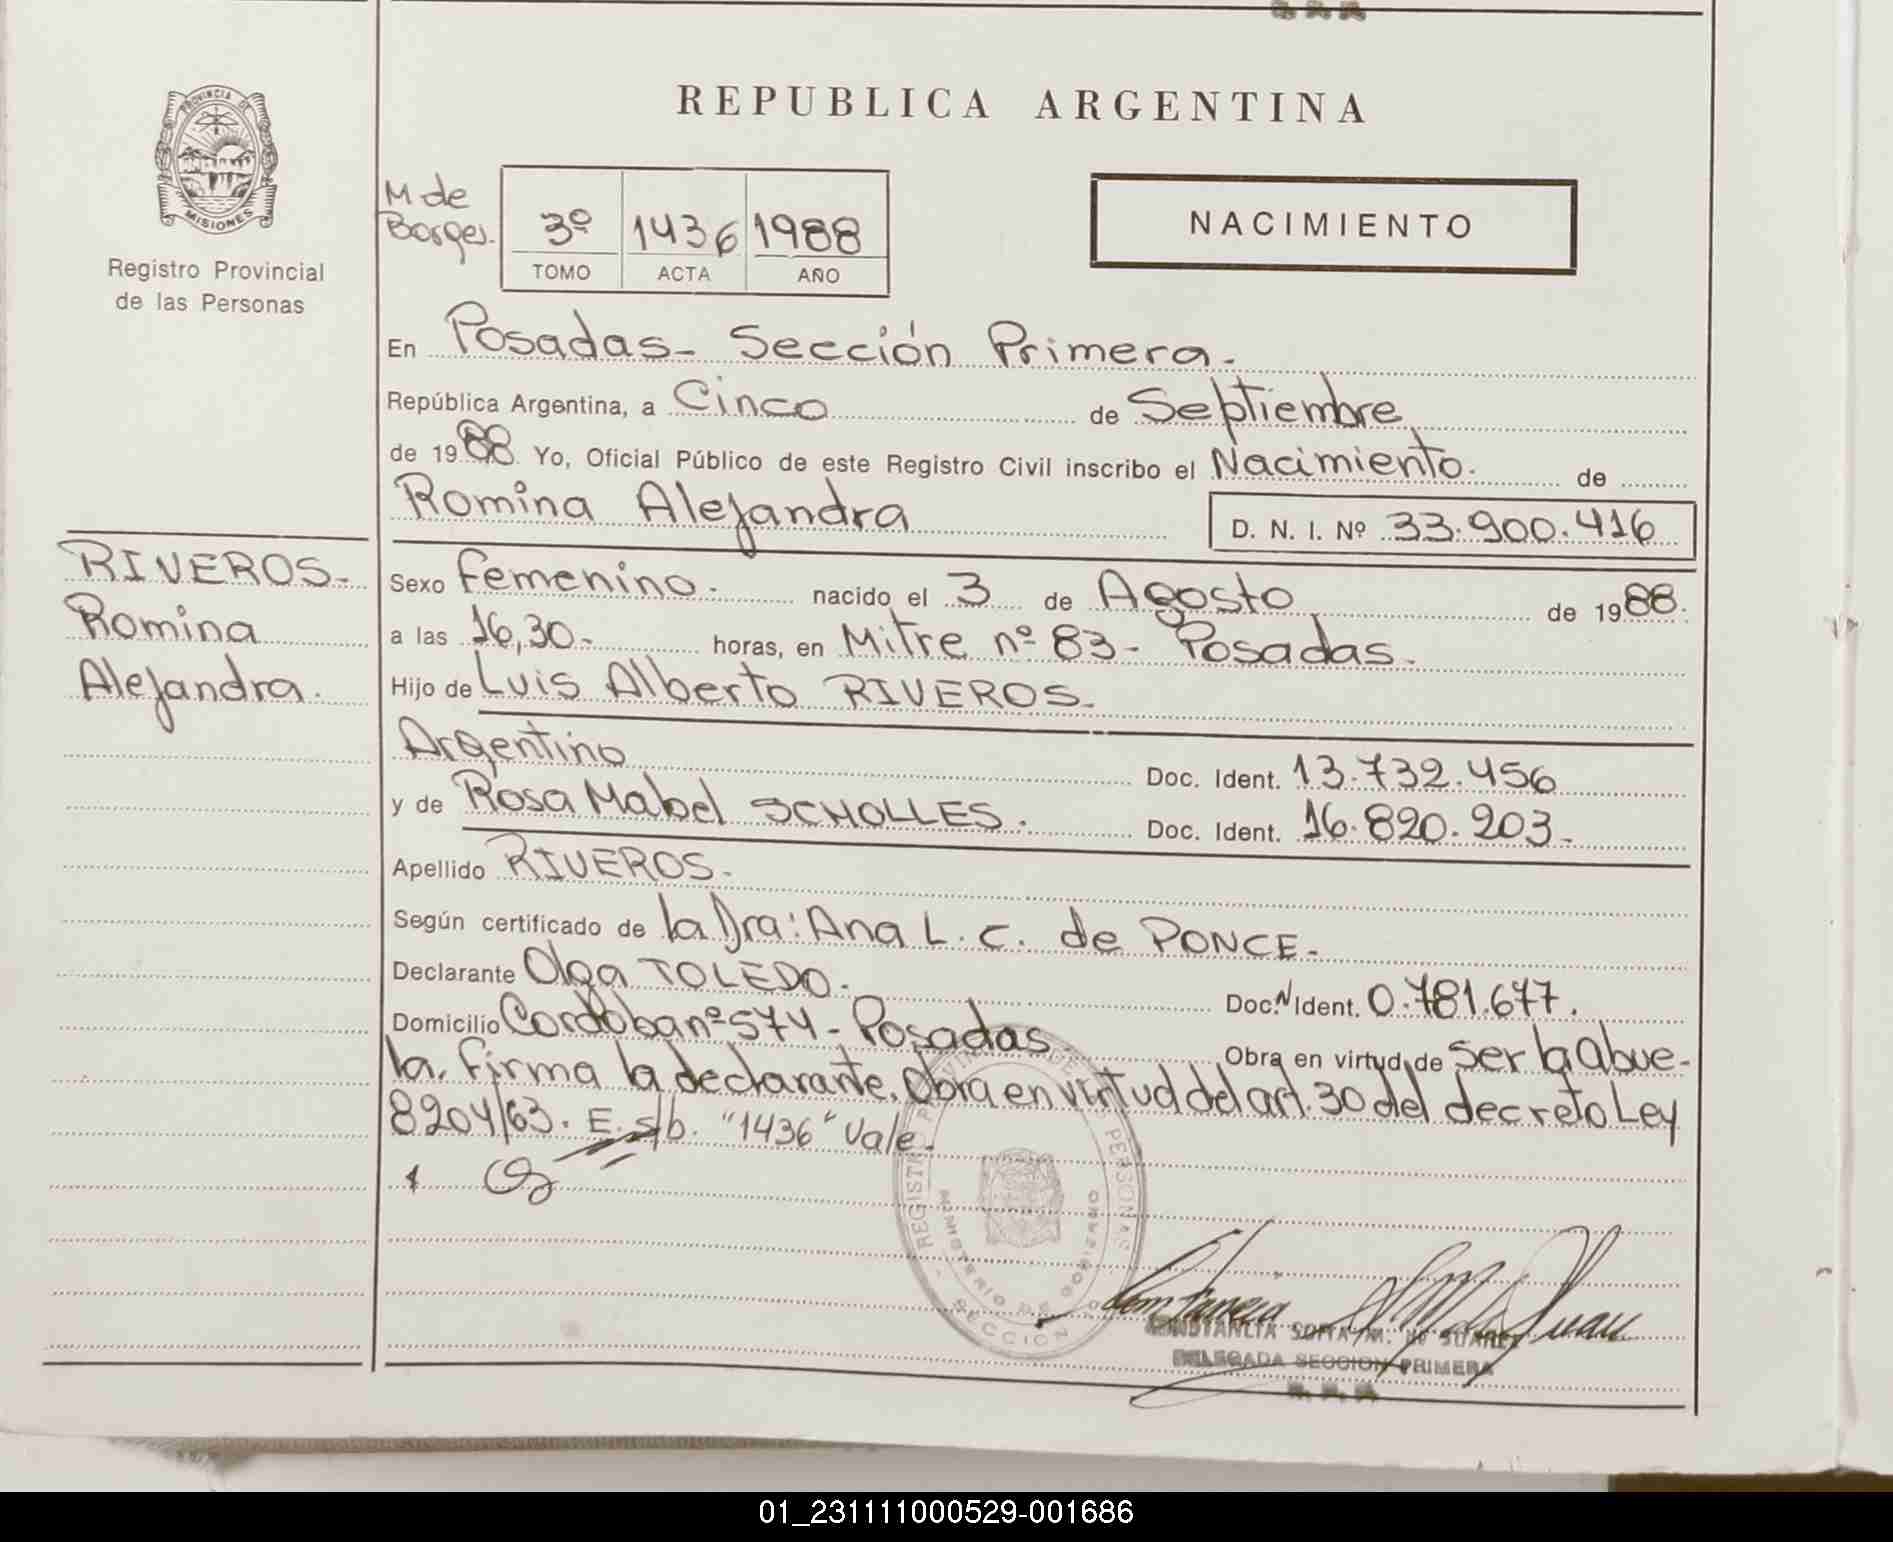 REPUBLICA ARGENTINA
PROVINCIA DE
MISIONES
Registro Provincial
de las Personas
M de
Borges.
3º 1436 1988
TOMO ACTA AÑO
NACIMIENTO
En Posadas- Sección Primera.
República Argentina, a Cinco de Septiembre
de 1988. Yo, Oficial Público de este Registro Civil inscribo el Nacimiento. de
Romina Alejandra D. N. I. Nº 33.900.416
RIVEROS-
Romina
Alejandra.
Sexo Femenino. nacido el 3 de Agosto de 1988.
a las 16,30- horas, en Mitre nº 83- Posadas.
Hijo de Luis Alberto RIVEROS-
Argentino Doc. Ident. 13.732.456
y de Rosa Mabel SCHOLLES. Doc. Ident. 16.820.203-
Apellido RIVEROS-
Según certificado de la Dra: Ana L. C. de PONCE-
Declarante Olga TOLEDO. Doc. N Ident. 0.781.677.
Domicilio Cordoba nº 574- Posadas Obra en virtud de ser la abue-
la. firma la declarante. Obra en virtud del art. 30 del decreto Ley
8204/63. E. s/b. "1436" Vale.
REGISTRO PROVINCIAL DE LAS PERSONAS
MINISTERIO DE GOBIERNO
SECCION
CONSTANCIA SOFIA M. DE SUAREZ
DELEGADA SECCION PRIMERA
01_231111000529-001686